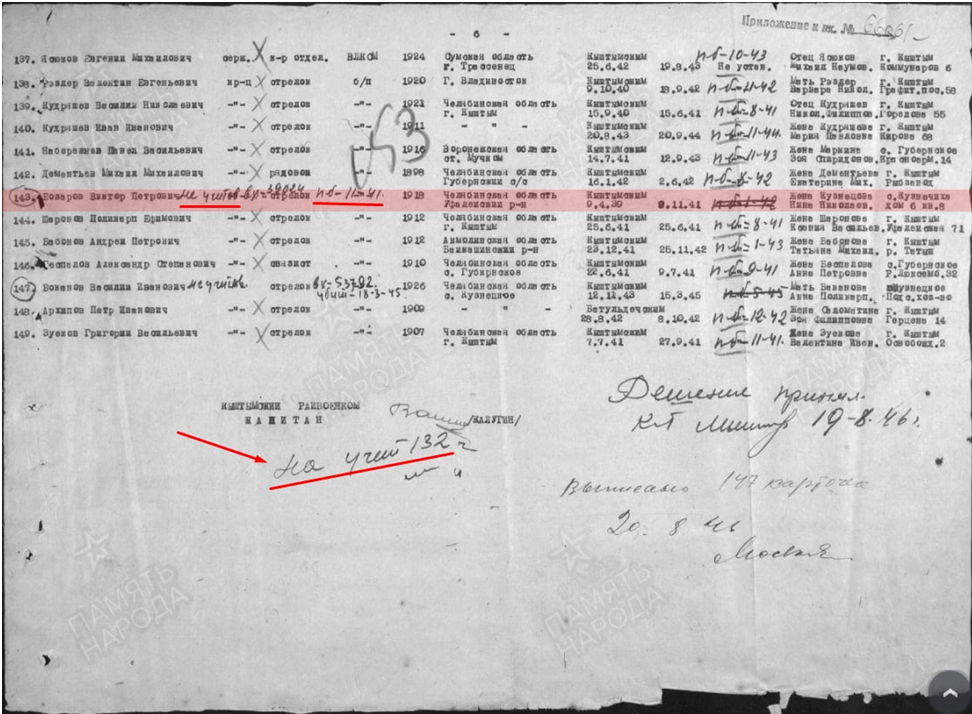 - 6 -
Приложение к вх. №
137. Ясюков Евгений Михайлович серж. к-р отдел. ВЛКСМ 1924 Сумская область Кыштымским п-б-10-43 Отец Ясюков г. Кыштым
г. Тростенец 25.6.42 19.8.43 Не устан. Михаил Наумов. Коммунеров 6
138. Рэдлер Валентин Евгеньевич кр-ц стрелок б/п 1920 г. Владивосток Кыштымским п-б-11-42 Мать Рэдлер г. Кыштым
9.10.40 18.9.42 Варвара Никол. Графит.пос.58
139. Кудряшев Василий Николаевич -"- стрелок -"- 1921 Челябинская область Кыштымским п-б-8-41 Отец Кудряшев г. Кыштым
г. Кыштым 15.9.40 15.6.41 Никол.Филиппов. Горелова 55
140. Кудряшев Иван Иванович -"- стрелок -"- 1911 - " - " Кыштымским п-б-11-44 Жена Кудряшева г. Кыштым
20.8.43 20.9.44 Мария Павловна Кирова 68
141. Набережнев Павел Васильевич -"- стрелок -"- 1916 Воронежская область Кыштымским п-б-11-43 с. Губернское
ст. Мучкап 14.7.41 12.9.43 Зоя Спиридонов. Красноарм.14
142. Дементьев Михаил Михайлович -"- рядовой -"- 1898 Челябинская область Кыштымским п-б-8-42 Жена Дементьева г. Кыштым
Губернский с/с 16.1.42 2.6.42 Екатерина Мих. Рыбзавод
143. Бозаров Виктор Петрович не учтов вх-39024 -"- стрелок п-б-11-41. 1918 Челябинская область Кыштымским Жена Кузнецова
Увельский р-н 9.4.30 9.11.41 п-б-1-42 Нина Николаев. дом 6 кв.8
144. Шаронов Полинарп Ефимович -"- стрелок -"- 1912 Челябинская область Кыштымским п-б-8-41 Жена Шаронова г. Кыштым
г. Кыштым 25.6.41 25.6.41 Ксения Васильев. Уральская 71
145. Бабонов Андрей Петрович -"- стрелок -"- 1912 Акмолинская область Кыштымским п-б-1-43 Жена Бабонова г. Кыштым
23.12.41 25.11.42 Татьяна Михаил.
146. Беспалов Александр Степанович -"- связист -"- 1910 Челябинская область Кыштымским п-б-9-41 Жена Беспалова с.Губернское
с. Губернское 22.6.41 9.7.41 Анна Петровна Р.Люксемб.32
147. Баженов Василий Иванович не учтён стрелок вх-53792. убит-18-3-45. 1926 Челябинская область Кыштымским Мать Баженова с.Кузнецкое
с. Кузнецкое 12.11.43 15.3.45 п-б-5-45 Анна Полинарп. Подс.хоз-во
148. Архипов Петр Иванович -"- стрелок -"- 1909 - " - " Ветульдечским Жена Саломатина г. Кыштым
28.8.42 8.10.42 п-б-12-42 Зоя Филипповна Герцена 14
149. Зуеков Григорий Васильевич -"- стрелок -"- 1907 Челябинская область Кыштымским Жена Зуекова г. Кыштым
г. Кыштым 7.7.41 27.9.41 п-б-11-41. Валентина Иван. Освобожд.2
КЫШТЫМСКИЙ РАЙВОЕНКОМ
КАПИТАН /КАЛУГИН/
на учет 132 ч
Решение принял.
К-Т 19-8-46г.
Выписано 147 карточек
20. 8 46
Москва
ПАМЯТЬ НАРОДА
ПАМЯТЬ НАРОДА
ПАМЯТЬ НАРОДА
ПАМЯТЬ НАРОДА